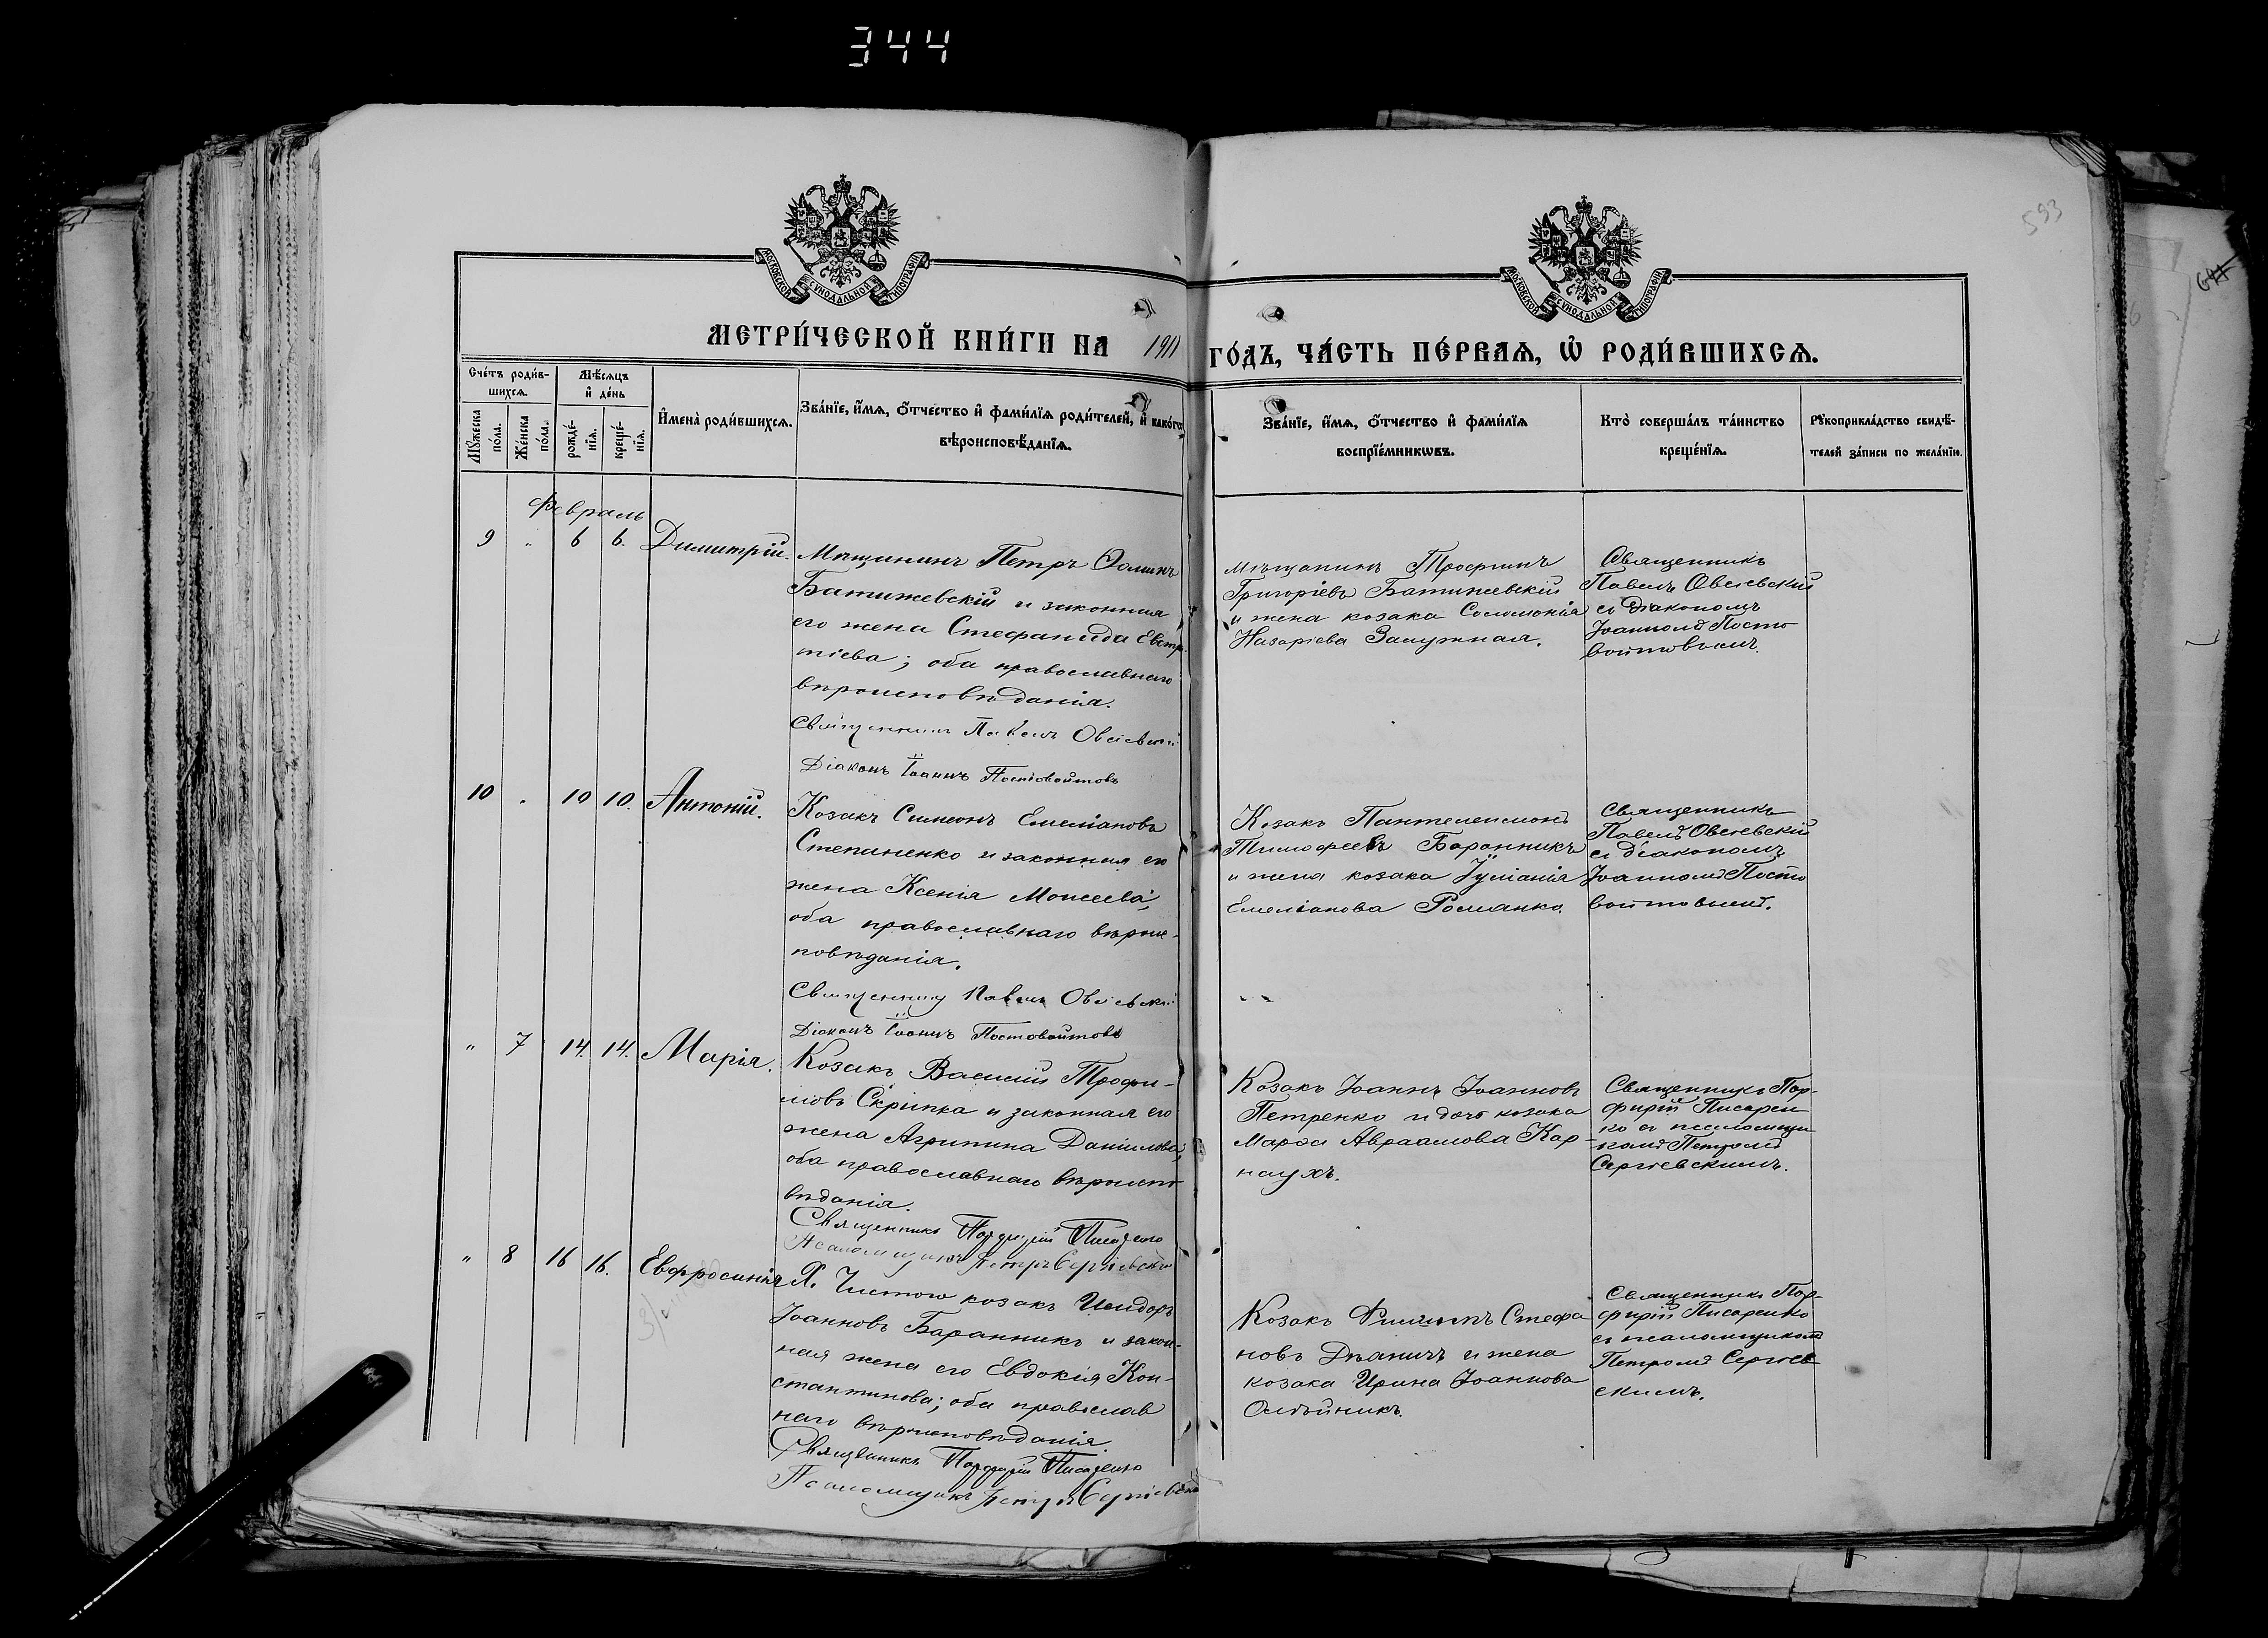 344
593
МОСКОВСКОЙ СѴНОДАЛЬНОЙ ТИПОГРАФІИ
МОСКОВСКОЙ СѴНОДАЛЬНОЙ ТИПОГРАФІИ
МЕТРИ́ЧЕСКОЙ КНИ́ГИ НА 1911 ГО́ДЪ, ЧА́СТЬ ПЕ́РВАѦ, Ѽ РОДИ́ВШИХСѦ.
Сче́тъ роди́в-
шихсѧ.
Мꙋжеска по́ла.
Же́нска по́ла.
Мѣ́сѧцъ
и҆ де́нь
рожде́-
нїѧ.
креще́-
нїѧ.
И҆мена̀ роди́вшихсѧ.
Зва́нїе, и҆́мѧ, ѻ҆́тчество и҆ фами́лїѧ роди́телей, и҆ како́гѡ
вѣроисповѣ́данїѧ.
Зва́нїе, и҆́мѧ, ѻ҆́тчество и҆ фами́лїѧ
воспрїе́мникѡвъ.
Кто̀ соверша́лъ та́инство
креще́нїѧ.
Рꙋкоприкла́дство свидѣ́-
телей за́писи по жела́нїю.
Февраль
9 " 6 6. Димитрій.
Мѣщанинъ Петръ Ѳоминъ
Батижевскій и законная
его жена Стефанида Евстра-
тіева; оба православнаго
вѣроисповѣданія.
Священникъ Павелъ Овсіевскій
Діаконъ Іоаннъ Постовойтовъ
мѣщанинъ Трофимъ
Григоріевъ Батижевскій
и жена козака Соломонія
Назаріева Залужная.
Священникъ
Павелъ Овсіевскій
съ діакономъ
Іоанномъ Посто
войтовымъ.
10 " 10 10. Антоній.
Козакъ Симеонъ Емеліановъ
Степаненко и законная его
жена Ксенія Моисеева;
оба православнаго вѣроис-
повѣданія.
Священникъ Павелъ Овсіевскій
Діаконъ Іоаннъ Постовойтовъ
Козакъ Пантелеимонъ
Тимофеевъ Баранникъ
и жена козака Іуліанія
Емеліанова Романко.
Священникъ
Павелъ Овсіевскій
съ діакономъ
Іоанномъ Посто
войтовымъ.
" 7 14 14. Марія.
Козакъ Василій Трофи-
мовъ Скрипка и законная его
жена Агрипина Даніилова;
оба православнаго вѣроиспо-
вѣданія.
Священникъ Порфирій Писаренко
Псаломщикъ Петръ Сергіевскій
Козакъ Іоаннъ Іоанновъ
Петренко и дочь козака
Марѳа Авраамова Кар-
наухъ.
Священникъ Пор-
фирій Писарен
ко съ псаломщи
комъ Петромъ
Сергіевскимъ.
" 8 16 16. Евфросинія
Х. Чистого козакъ Исидоръ
Іоанновъ Баранникъ и закон-
ная жена его Евдокія Кон-
стантинова; оба православ
наго вѣроисповѣданія.
Священникъ Порфирій Писаренко
Псаломщикъ Петръ Сергіевскій
Козакъ Филиппъ Стефа
новъ Дѣаничъ и жена
козака Ирина Іоаннова
Олѣйникъ.
Священникъ Пор-
фирій Писаренко
съ псаломщикомъ
Петромъ Сергіев
скимъ.